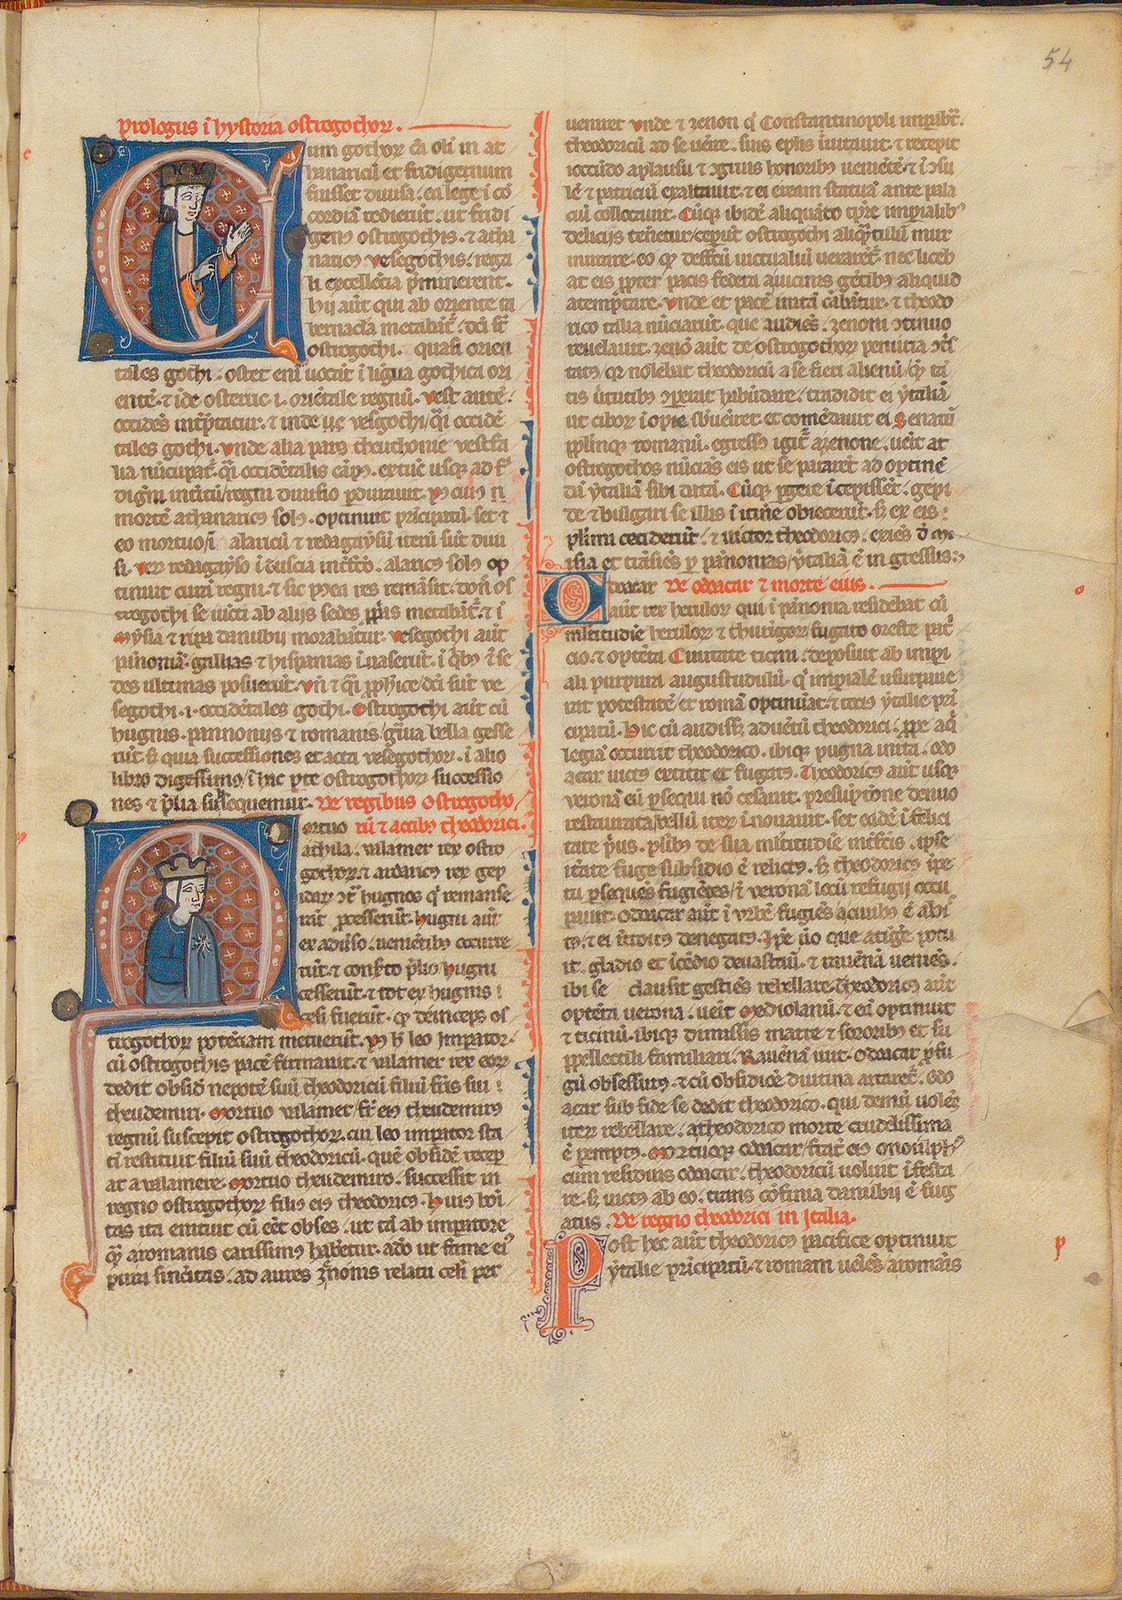 54
Prologus i hystoria ostrogothor.
Cum gothor en oli in at
hanaricu et fridigernum
fuisset diuisa. ea lege i co
cordia redierut. ut fridi
gerus ostrogothis. et atha
naricus vesegothis. rega
li excellecia preminerent.
hii aut qui ab oriente ta
bernacla metabat. dci st
ostrogothi. quasi orien
tales gothi. oster eni uocat i ligua gothica ori
ente. et ide osterric .i. orietale regnu. vest aute.
occides interpretatur. et inde
tales gothi. vnde alia pars theuthonie vestfa
lia nucupat.
digni
morte athanaricus solus. optinuit pricipatu. set
eo mortuo alaricu et redagaysu iteru sut diui
si. ver redagayso i tuscia interfecto. alaricus solus op
tinuit cura regni. et sic postea res remasit.
trogothi se iuncti ab aliis sedes pprias metabat. et i
Mysia et ripa danubii morabatur. vesegothi aut
panonia. gallias et hispanias iuaserut. i qbus et se
des ultimas posuerut.
segothi .i. occidetales gothi. Ostrogothi aut cu
hugnis. pannoniis et romanis. grauia bella gesse
rut. set quia successiones et acta vesegothor. i alio
libro digessimus. i hac parte ostrogothor successio
nes et prelia subsequemur. De regibus ostrogotho
Mortuo ru et actibus theodorici.
athila. vilamer rex ostro
gothor. et ardaricus rex gep
idar contra hugnos qui remanse
rat processerut. hugni aut
ex aduerso. venietibus occurre
rut. et conserto prelio hugni
cesserut. et tot ex hugnis
cesi fuerut. quod deinceps os
trogothor poteciam metuerut. leo Imperator.
cu ostrogothis pace firmauit. et vilamer rex eor
dedit obside nepote suu theodoricu filiu fris sui
theudemiri. Mortuo vilamer. frater eius theudemirus
regnu suscepit ostrogothor. cui leo imperator sta
ti restituit filiu suu theodoricu. que obside recep
at a vilamere. Mortuo theudemiro. successit in
regno ostrogothor filius eius theodoricus. Huius boi
tas ita enituit cu eet obses. ut ta ab imperatore
qm a romanis carissimus haberetur. adeo ut fame eius
pura sinceritas. ad aures zenonis relatu celeri per
ueniret. vnde et zenon qui Constantinopoli imperabat.
theodoricu ad se uenire. suis epistolis iuitauit. et recepit
iocudo aplausu et congruis honoribus ueniete. et i consu
le et patriciu exaltauit. et ei etiam statua ante pala
ciu collocauit. Cuque ibide aliquato tempore imperialibus
deliciis teneretur. ceperut ostrogothi aliqutulu mur
murare. eo quod defectu uictualiu uexaret. nec liceb
at eis propter pacis federa a uicinis getibus aliquid
atemptare. vnde et pace inita
rico talia nuciarut. que audies. zenoni continuo
reuelauit. zeno aut de ostrogothor penuria
quia nolebat theodoricu a se fieri alienu
tis uirtutibus habudare. tradidit ei ytalia
ut cibor i opie subueniret. et comedauit ei Senatu
populumque romanu. egressus igitur a zenone. uenit ad
ostrogothos nucias eis ut se pararet ad optine
da ytalia sibi data. Cuque pergere icepisset. gepi
de et bulgari se illis i itinere obiecerut. set ex eis
plurimi ceciderut. et uictor theodoricus. exies de me
sia et trasies per panonias. ytalia e in gressus.
Odoacar De odoacar et morte eius.
aut rex herulor qui i panonia residebat cu
multitudine herulor et thuringor. fugato oreste patri
cio. et optenta Ciuitate ticini. deposuit ab imperi
ali purpura augustulu. qui imperiale usurpaue
rat potestate. et roma optinuerat et totius ytalie pri
cipatu. Hic cu audisset aduetu theodorici. prope aqui
legia occurrit theodorico. ibique pugna inita. odo
acar uictus extitit et fugatus. Theodoricus aut usque
verona eu persequi no cessauit. presumptione denuo
restaurata. bellu iter inouauit. set eade i felici
tate prius. pluribus de sua multitudine interfectis. ipse
iterate fuge subsidio e relictus. set theodoricus
tu persequens fugientes. i verona locu refugii occu
pauit. odoacar aut i urbe fugies a ciuibus e abi
tus. et ei introitus denegatus. Ipse uero que atingere potu
it. gladio et icedio deuastauit. et rauena uenies.
ibi se clausit gesties rebellare. theodoricus aut
optenta uerona. uenit Mediolanu. et eu optinuit
et ticinu. ibique dimissis matre et sororibus et su
ppellectili familiari. Rauena iuit. odoacar
obsessurus. et cu obsidioe diutina artaret. odo
acar sub fide se dedit theodorico. qui demu uoles
iteru rebellare. a theodorico morte crudelissima
e peremptus. Mortuoque odoacar. frater eius onoulphus
cum residuis odoacar. theodoricu uoluit infesta
re. set uictus ab eo. trans cofinia danubii e fug
atus. De regno theodorici in Italia.
Post hec aut theodoricus pacifice optinuit
ytalie pricipatu. et romam uenies a romais
e
o
p